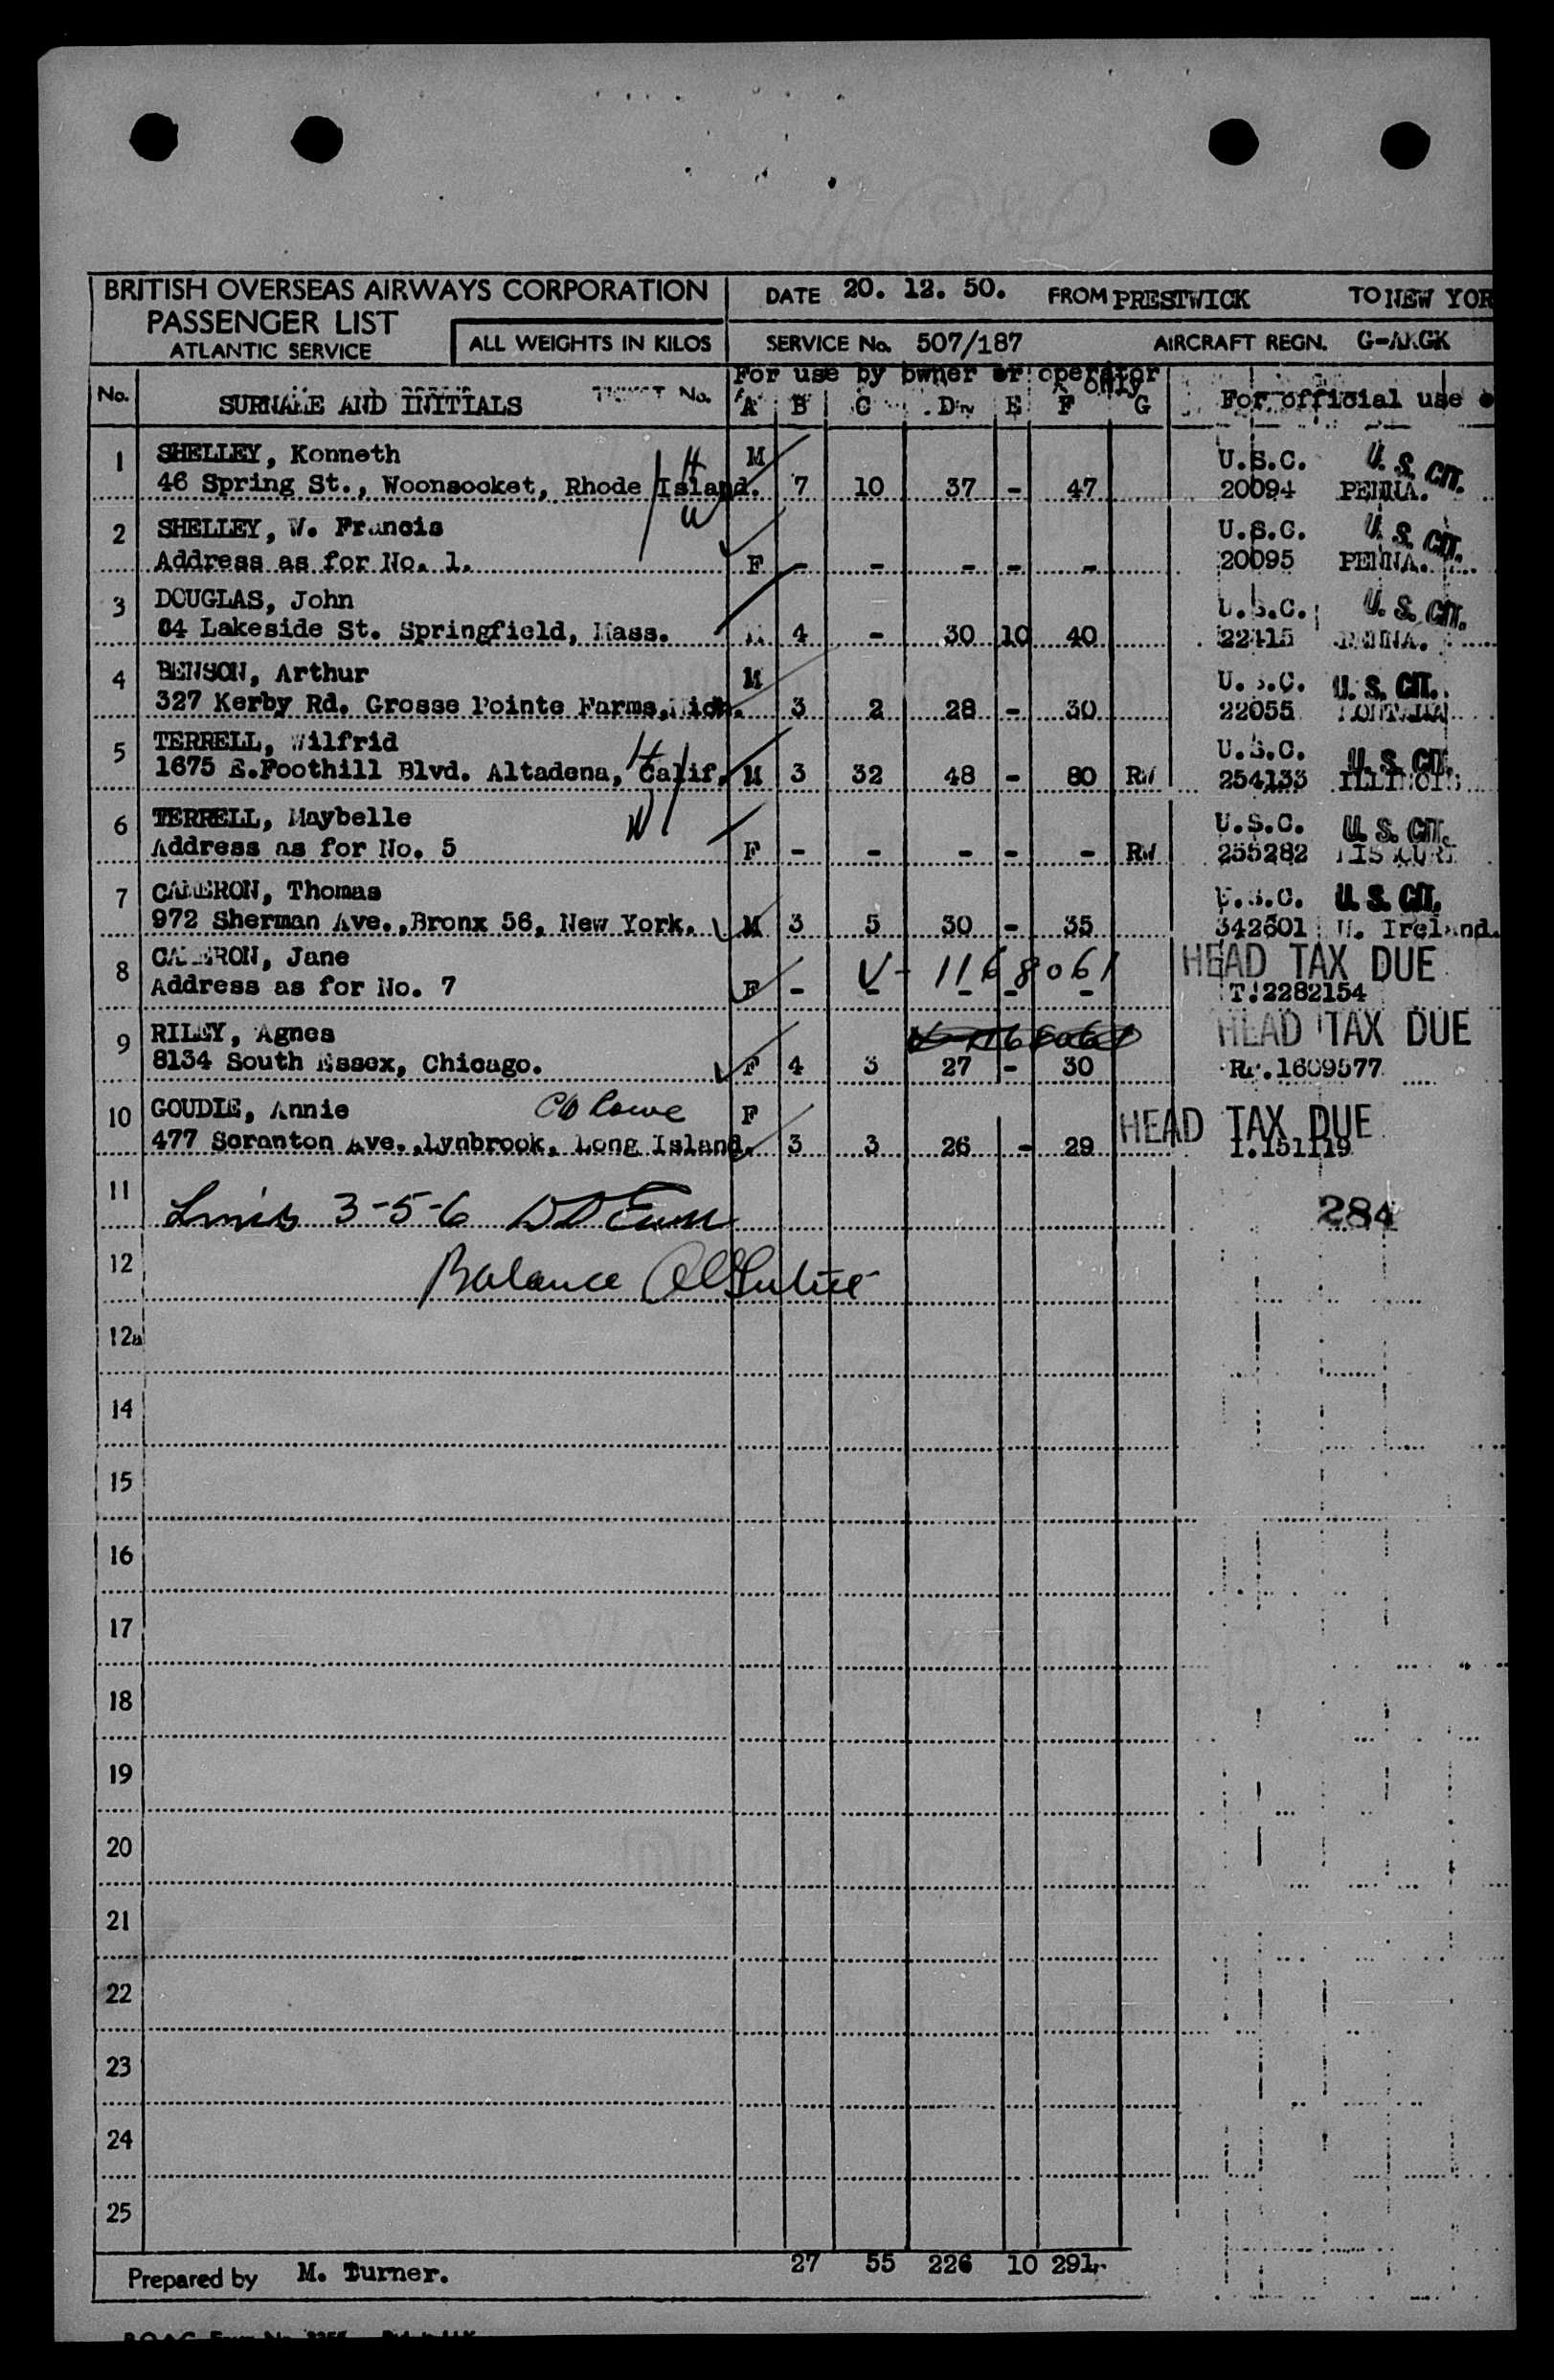 BRITISH OVERSEAS AIRWAYS CORPORATION
PASSENGER LIST
ATLANTIC SERVICE
ALL WEIGHTS IN KILOS
DATE 20. 12. 50. FROM PRESTWICK TO NEW YOR
SERVICE No. 507/187 AIRCRAFT REGN. G-AKGK
For use by owner or operator only
No. SURNAME AND INITIALS No. A B C D E F G For official use
1 SHELLEY, Konneth M U.S.C. U.S. CIT.
46 Spring St., Woonsocket, Rhode Island. 7 10 37 - 47 20094 PENNA.
H
W
2 SHELLEY, W. Francis U.S.C. U.S. CIT.
Address as for No. 1. F - - - - - 20095 PENNA.
3 DOUGLAS, John U.S.C. U.S. CIT.
84 Lakeside St. Springfield, Mass. M 4 - 30 10 40 22415 PENNA.
4 BENSON, Arthur M U.S.C. U.S. CIT.
327 Kerby Rd. Grosse Pointe Farms, Mich. 3 2 28 - 30 22055 MONTANA
5 TERRELL, Wilfrid U.S.C. U.S. CIT.
1675 E.Foothill Blvd. Altadena, Calif. M 3 32 48 - 80 RW 254133 ILLINOIS
H
W
6 TERRELL, Maybelle U.S.C. U.S. CIT.
Address as for No. 5 F - - - - - RW 255282 MISSOURI
7 CAMERON, Thomas U.S.C. U.S. CIT.
972 Sherman Ave.,Bronx 56, New York. M 3 5 30 - 35 342601 N. Ireland.
8 CAMERON, Jane V-1168061 HEAD TAX DUE
Address as for No. 7 F - - - - - T.2282154
9 RILEY, Agnes V-1168061 HEAD TAX DUE
8134 South Essex, Chicago. F 4 3 27 - 30 1609577
10 GOUDIE, Annie C/O Lowe F HEAD TAX DUE
477 Scranton Ave.,Lynbrook, Long Island. 3 3 26 - 29 I.151119
11 3-5-6 284
12 Balance
12a
14
15
16
17
18
19
20
21
22
23
24
25
27 55 226 10 291
Prepared by M. Turner.